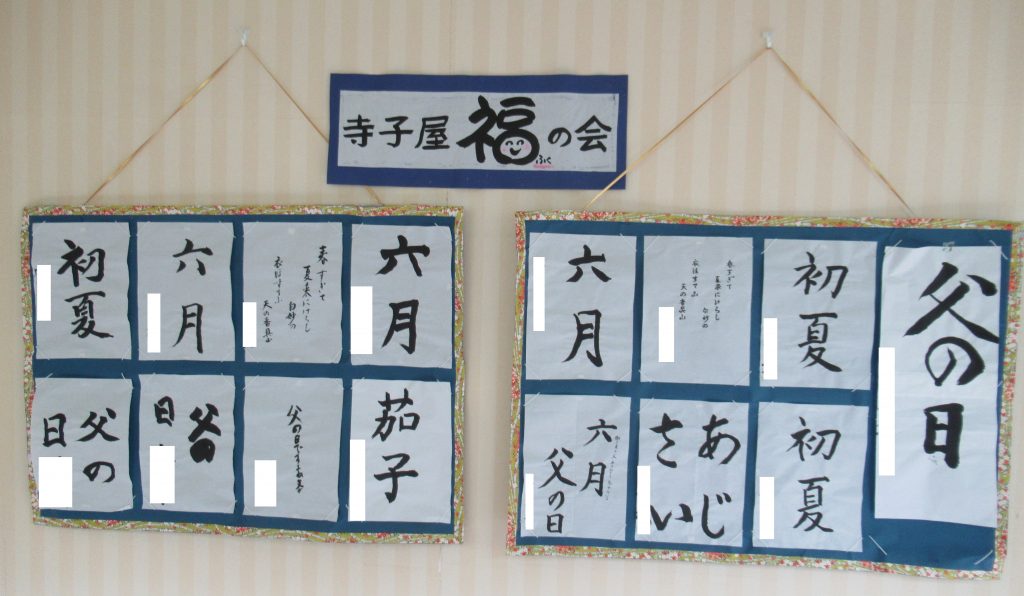 寺子屋福の会
ふく
六月
春すぎて
夏来にけらし
白妙の
衣ほすてふ
天の香具山
六月
初夏
茄子
父の日
父の
日
父の
日
父の日
初夏
春すぎて
夏来にけらし
白妙の
衣ほすてふ
天の香具山
六月
初夏
あじ
さい
六月
父の日